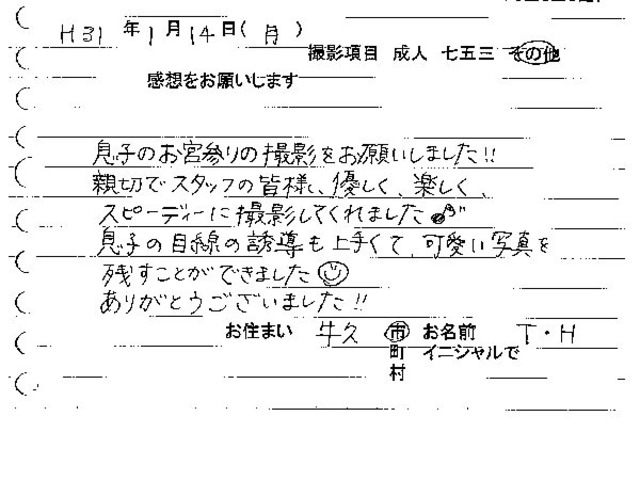 H31年1月14日(月)
撮影項目 成人 七五三 その他
感想をお願いします
息子のお宮参りの撮影をお願いしました!!
親切でスタッフの皆様も、優しく、楽しく、
スピーディーに撮影してくれました
息子の目線の誘導も上手くて、可愛い写真を
残すことができました☺
ありがとうございました!!
お住まい 牛久 市 お名前 T・H
町 イニシャルで
村